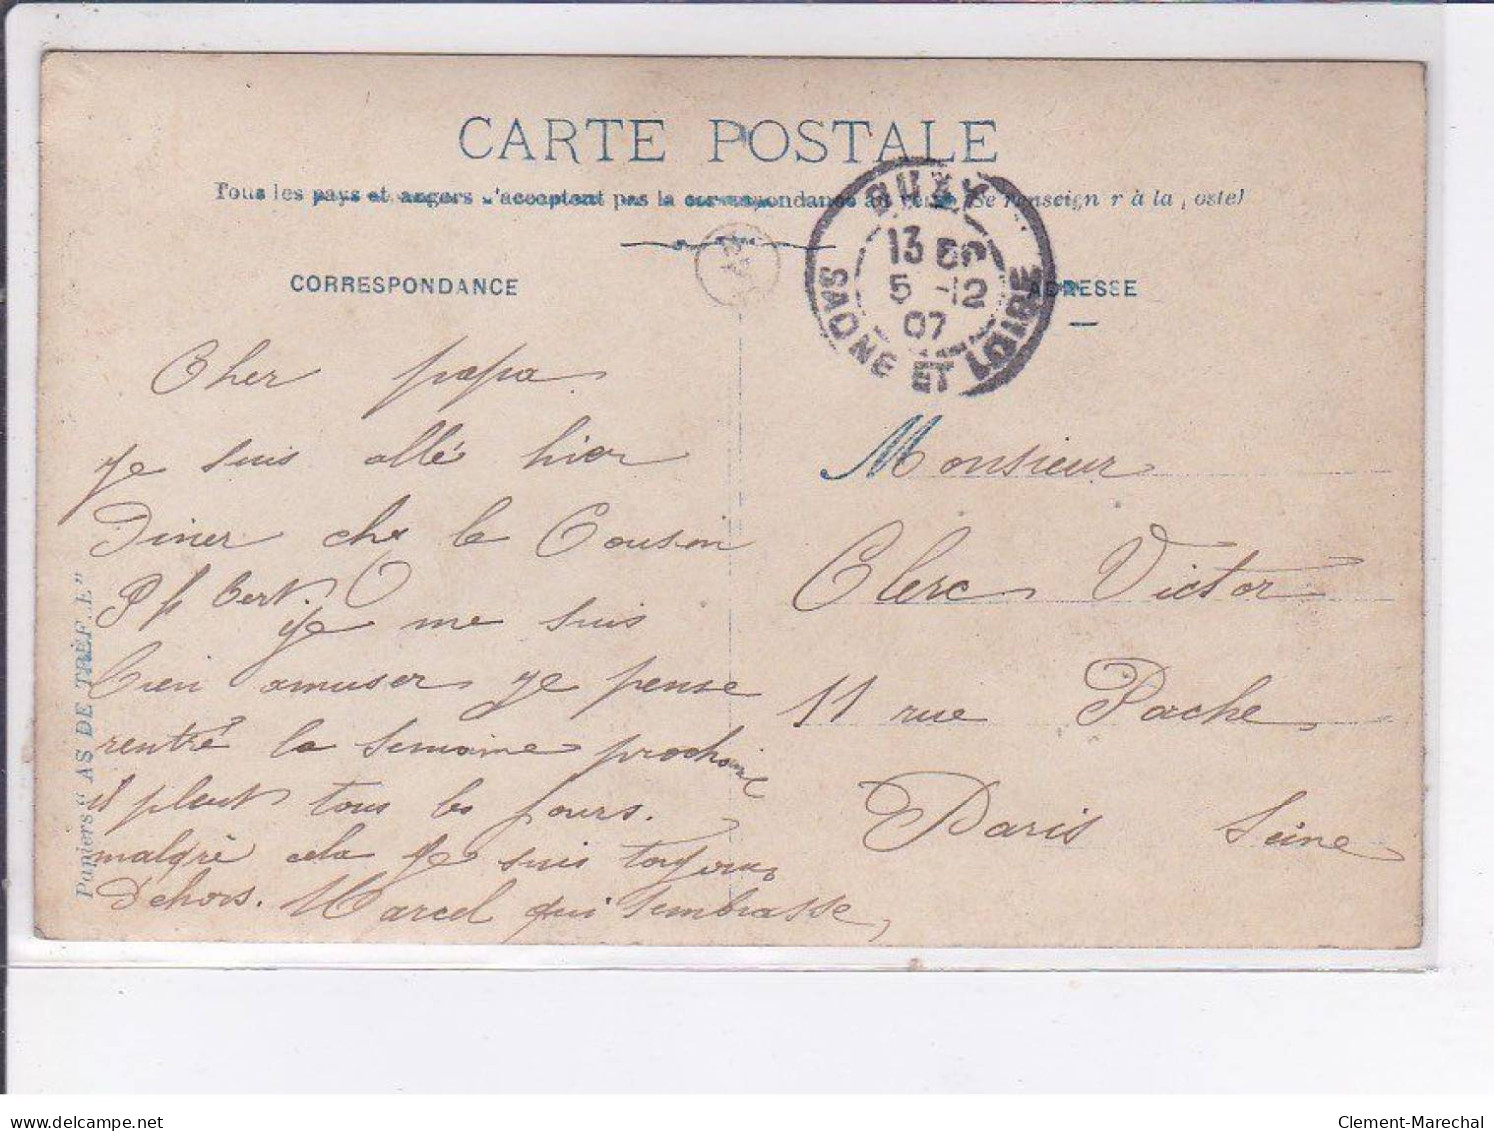 CARTE POSTALE
Tous les pays et angers n'acceptent pas la correspondance au (Se renseign r à la poste)
CORRESPONDANCE
ADRESSE
BUXY
13 50
5 -12
07
SAONE ET LOIRE
Cher papa
Je suis allé hier
Diner chx le Cousin
Je me suis
bien amuser Je pense
rentré la semaine prochaine
il pleut tous les jours.
malgré cela Je suis toujours
Dehors. Marcel qui t'embrasse,
Monsieur
Clerc Victor
11 rue Pache
Paris Seine
Papiers "AS DE TREFLE"
delcampe.net
Clement-Marechal